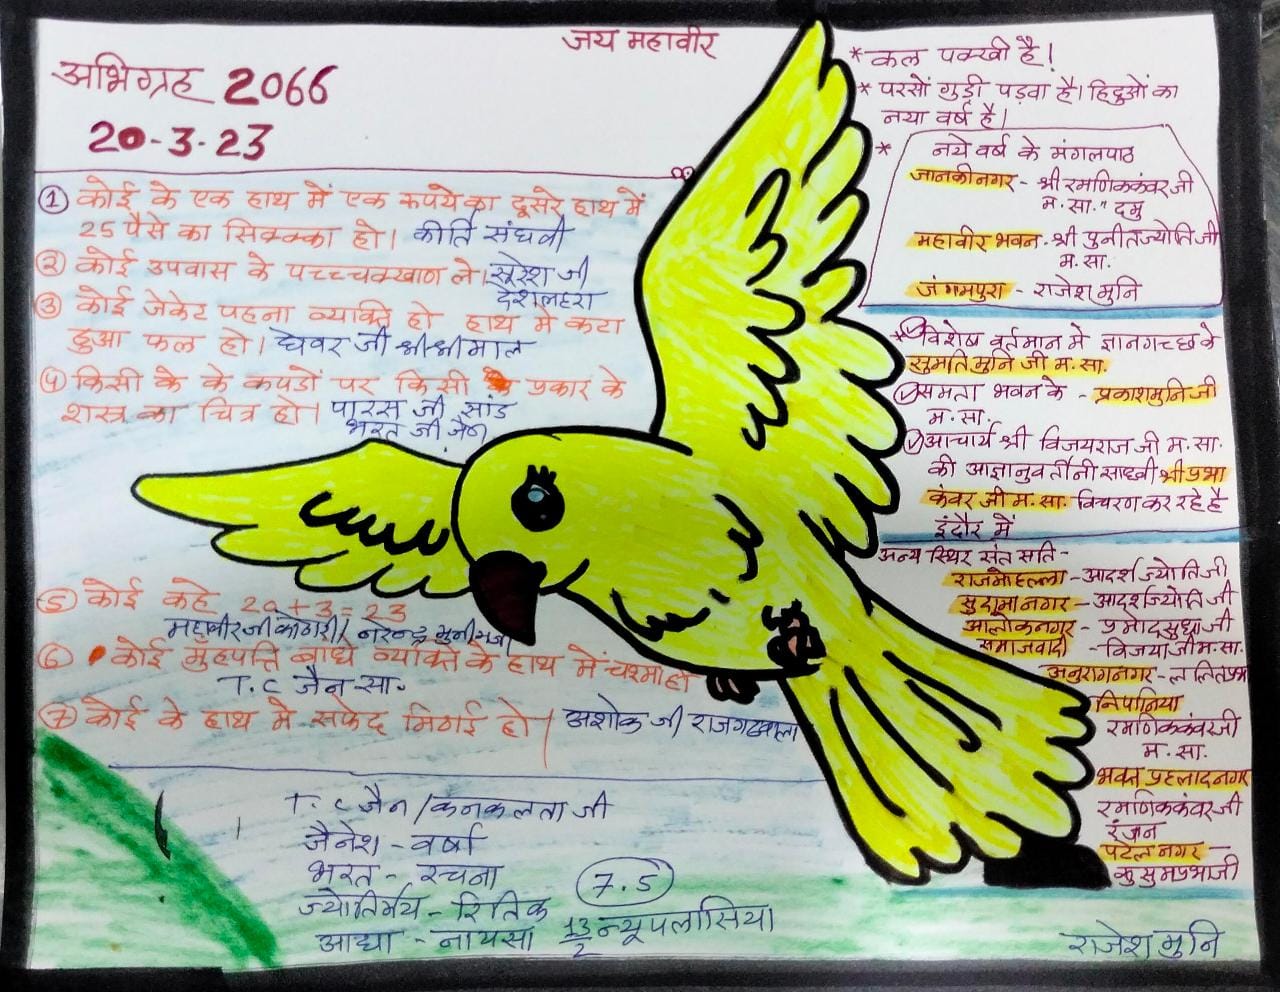 जय महावीर
अभिग्रह 2066
20-3-23
① कोई के एक हाथ में एक रूपये का दूसरे हाथ में
25 पैसे का सिक्क्का हो। कीर्ति संघवी
② कोई उपवास के पच्च्चक्खाण ले। सूरेश जी
देशलहरा
③ कोई जेकेट पहना व्यक्ति हो हाथ मे कटा
हुआ फल हो। घेवर जी श्रीश्रीमाल
④ किसी के के कपडों पर किसी प्रकार के
शस्त्र का चित्र हो। पारस जी सांड
भरत जी जैन
⑤ कोई कहे 20+3=23
महावीर जी कोठारी/ नरेन्द्र
⑥ कोई मुंहपत्ति बांधे व्यक्ति के हाथ में चश्मा हो
T.C जैन सा.
⑦ कोई के हाथ मे सफेद मिठाई हो। अशोक जी राजगढवाला
T.C जैन/कनकलता जी
जैनेश - वर्षा
भरत - रचना
ज्योतिर्मय - रितिक
आद्या - नायसा
7.5
13/2 न्यू पलासिया
* कल पक्खी है!
* परसों गुड़ी पड़वा है। हिंदुओं का
नया वर्ष है।
* नये वर्ष के मंगलपाठ
जानकीनगर - श्री रमणिककंवर जी
म.सा. "दमु
महावीर भवन - श्री पुनीतज्योति जी
म.सा.
जंगमपुरा - राजेश मुनि
* विशेष वर्तमान मे ज्ञानगच्छ के
सुमति मुनि जी म.सा.
समता भवन के - प्रकाशमुनि जी
म.सा.
आचार्य श्री विजयराज जी म.सा.
की आज्ञानुवर्तीनी साध्वी श्री प्रभा
कंवर जी म.सा. विचरण कर रहे है
इंदौर में
अन्य स्थिर संत सति -
राजमोहल्ला - आदर्श ज्योति जी
सुदामानगर - आदर्शज्योति जी
आलोकनगर - प्रमोदसुधा जी
समाजवादी - विजया जी म.सा.
अनुरागनगर - ललितप्रभा
निपानिया
रमणिककंवर जी
म.सा.
भक्त प्रहलादनगर
रमणिककंवर जी
रंजन
पटेल नगर -
कुसुमप्रभाजी
राजेश मुनि